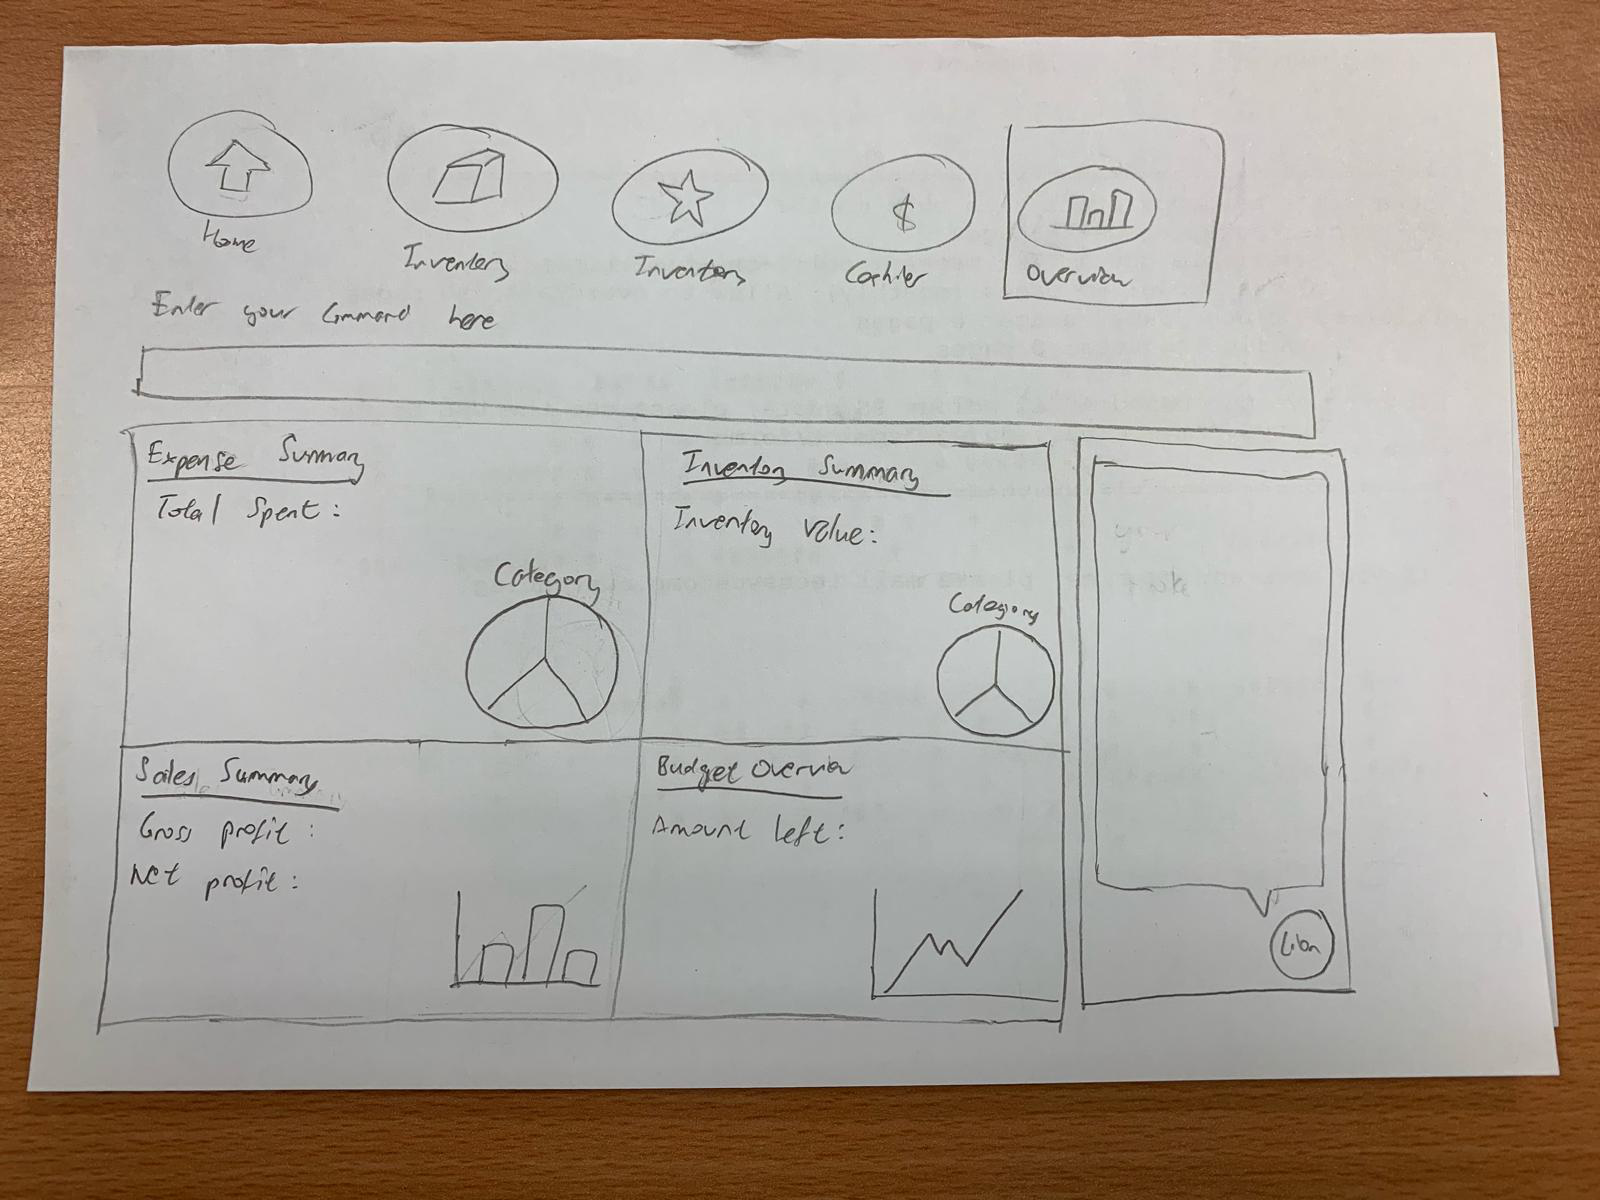 Home
Inventory
Inventory
$
Cashier
Overview
Enter your Command here
Expense Summary
Total Spent:
Category
Inventory Summary
Inventory Value:
Category
Sales Summary
Gross profit:
Net profit:
Budget Overview
Amount left: